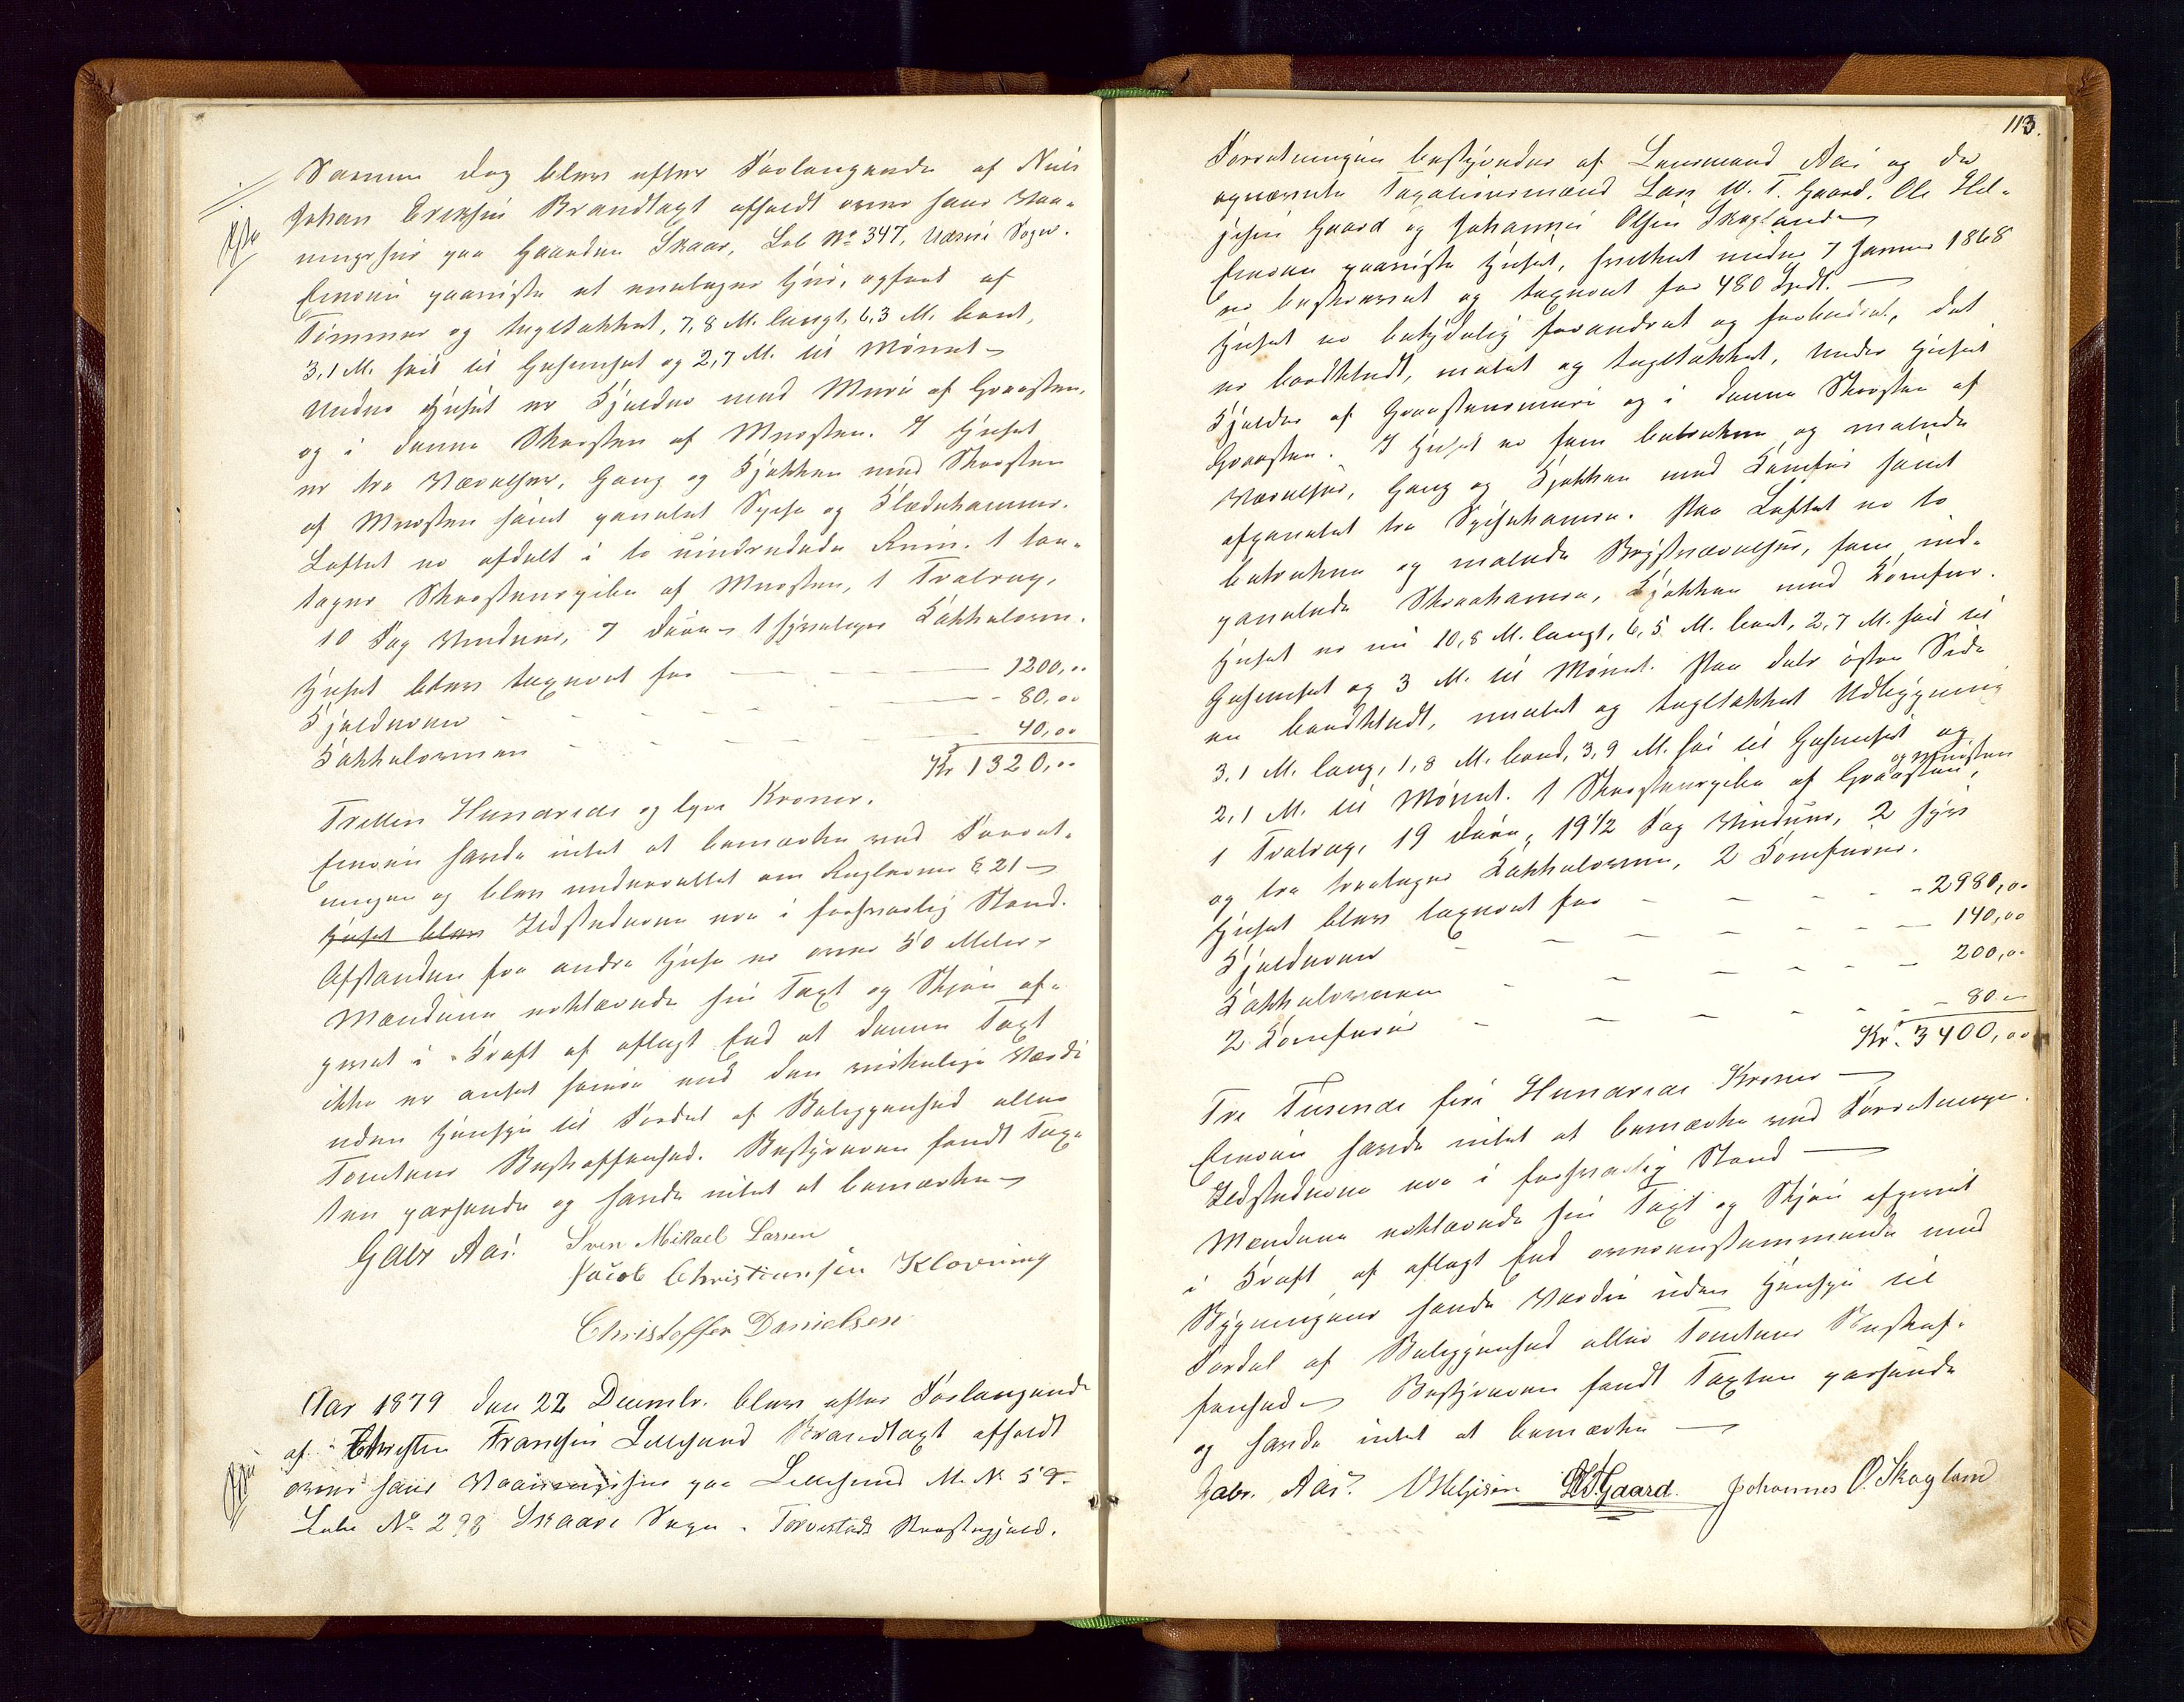 Samme Dag blev efter Forlangende af Niels
Johan Eriksen Brandtaxt afholdt over hans Vaa-
ningshus paa Gaarden Skaar, Løb No 347, Udsire Sogn.
Eieren paaviste et eenetages Huus, opført af
Tømmer og tegltækket, 7,8 M. langt, 6,3 M. bredt,
3,1 M. høit til Gesimset og 2,7 M. til Mønet –
Under Huset er Kjelder med Mure af Graasten,
og i denne Skorsten af Mursten. I Huset
er tre Værelser, Gang og Kjøkken med Skorsten
af Mursten samt panelet Spise og Klædekammer.
Loftet er afdelt i to uindredede Rum. 1 toe-
tages Skorstenspibe af Mursten, 1 Traltrap,
10 Fag Vinduer, 7 Døre – 1 Kakkelovn.
Huset blev taxeret for – – – 1200,00
Kjelderen – – – 80,00
Kakkelovnen – – – 40,00
Kr 1320,00
Tretten Hundrede og tyve Kroner.
Eieren havde intet at bemærke ved Forret-
ningen og blev underrettet om Reglerne § 21 –
Huset blev Ildstederne var i forsvarlig Stand.
Afstanden fra andre Huse er over 50 Meter –
Mændene erklærede sin Taxt og Skjøn af-
givet i Kraft af aflagt Eed at denne Taxt
ikke er ansat høiere end den virkelige Værdi
uden Hensyn til Fordel af Beliggenhed eller
Tomtens Beskaffenhed. Bestyreren fandt Tax-
ten passende og havde intet at bemærke –
Gabr Aas. Sven Mikael Larsen
Jacob Christiansen Klovning
Christoffer Danielsen
Aar 1879 den 22 Decembr. blev efter Forlangende
af Christen Fransen Lillesund Brandtaxt afholdt
over hans Vaaningshus paa Lillesund M. N. 59.
Løbe No 298 Skaare Sogn – Torvestads Præstegjeld.
113.
Forretningen bestyredes af Lensmand Aas og de
opnævnte Taxationsmænd Lars W. T. Gaard, Ole Hel-
jesen Gaard og Johannes Olsen Skogland –
Eieren paaviste Huset, hvilket under 7 Januar 1868
er beskrevet og taxeret for 480 Spdl. –
Huset er betydelig forandret og forbedret, det
er bordklædt, malet og tegltækket. Under Huset
Kjelder af Graastensmure og i denne Skorsten af
Graasten. I Huset er fem betrukne og malede
Værelser, Gang og Kjøkken med Komfur samt
afpanelet tre Spisekamre. Paa Loftet er to
betrukne og malede Kvistværelser, fem ind-
panelede Skraakamre, Kjøkken med Komfur.
Huset er nu 10,8 M. langt, 6,5 M. bredt, 2,7 M. høit til
Gesimset og 3 M. til Mønet. Paa dets østre Side
en bordklædt, malet og tegltækket Udbygning
3,1 M. lang, 1,8 M. bred, 3,9 M. høi til Gesimset og
2,1 M. til Mønet. 1 Skorstenspibe af Graasten og Mursten,
1 Traltrap, 19 Døre, 19 1/2 Fag Vinduer, 2
og tre toetages Kakkelovne, 2 Komfurer.
Huset blev taxeret for – – – 2980,00
Kjelderen – – – 140,00
Kakkelovnene – – – 200,00
2 Komfurer – – – 80 –
Kr. 3400,00
Tre Tusende fire Hundrede Kroner –
Eieren havde intet at bemærke ved Forretningen.
Ildstederne var i forsvarlig Stand –
Mændene erklærede sin Taxt og Skjøn afgivet
i Kraft af aflagt Eed overensstemmende med
Bygningens sande Værdie uden Hensyn til
Fordel af Beliggenhed eller Tomtens Beskaf-
fenhed – Bestyreren fandt Taxten passende
og havde intet at bemærke –
Gabr. Aas. O Heljesen LWTGaard. Johannes O. Skogland